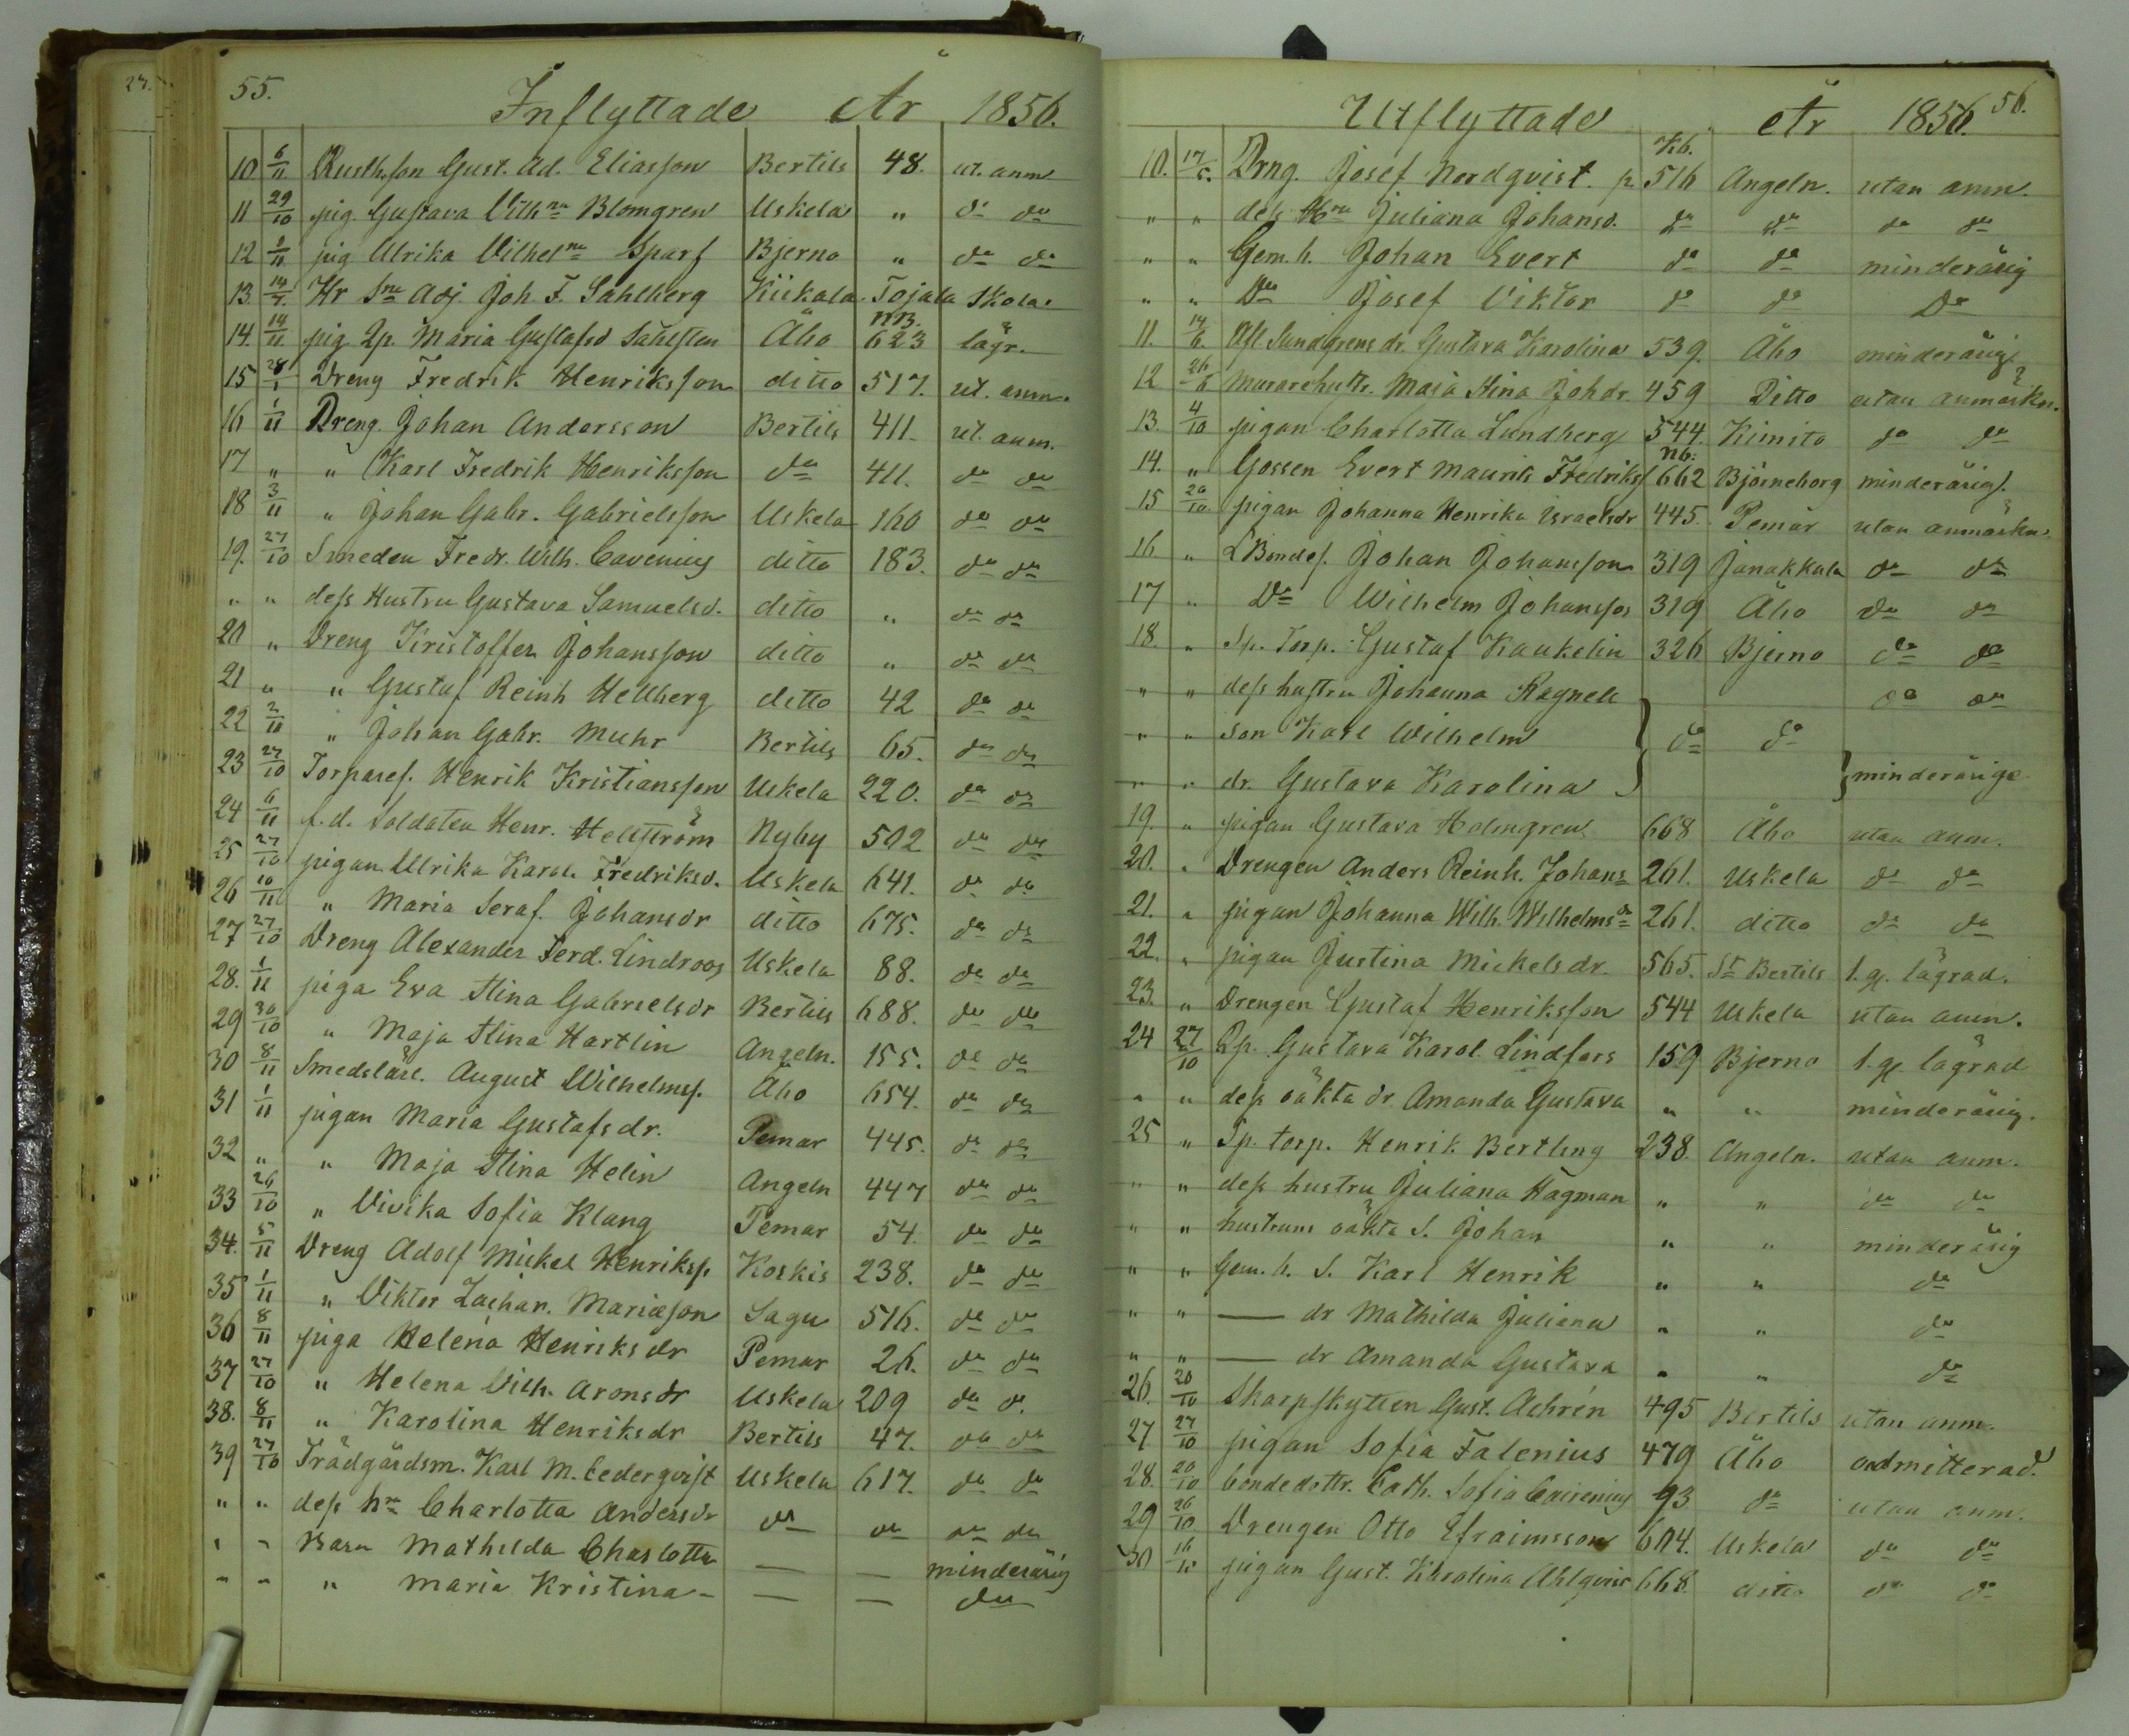 55.
Inflyttade År 1856.
10 6/11 Rusth.son Gust. Ad. Eliasson Bertils 48. ut. anm
11 29/10 pig. Gustava Vilhna Blomgren Uskela " do do
12 9/11 pig Ulrika Vilhelna Sparf Bjerno " do do
13. 14/7 Hr Adj. Joh. F. Sahlberg Kiikala Tojala Skola
14. 14/11 pig Qp. Maria Gustafsd Sahlsten Åbo NB. 623 lägr.
15 28/1 Dreng Fredrik Henriksson ditto 517. ut. anm.
16 1/11 Dreng. Johan Andersson Bertils 411. ut. anm.
17 " " Karl Fredrik Henriksson do 411. do do
18 3/11 " Johan Gabr. Gabrielsson Uskela 160 do do
19. 27/10 Smeden Fredr. Wilh. Cavenius ditto 183. do do
" " dess Hustru Gustava Samuelsd. ditto " do do
20 " Dreng Kristoffer Johansson ditto " do do
21 " " Gustaf Reinh Hellberg ditto 42 do do
22 2/11 " Johan Gabr. Muhr Bertils 65. do do
23 27/10 Torparef. Henrik Kristiansson Uskela 220. do do
24 6/11 f.d. Soldaten Henr. Hellström Nyby 502 do do
25 27/10 pigan Ulrika Karol. Fredriksd. Uskela 641. do do
26 10/11 " Maria Seraf. Johansdr ditto 675. do do
27 27/10 Dreng Alexander Ferd. Lindroos Uskela 88. do do
28. 1/11 piga Eva Stina Gabrielsdr Bertils 688. do do
29 30/10 " Maja Stina Hartlin Angeln. 155. do do
30 8/11 Smedslärl. August Wilhelmsf. Åbo 654. do do
31 1/11 pigan Maria Gustafsdr. Pemar 445. do do
32 " " Maja Stina Helin Angeln 447 do do
33 26/10 " Vivika Sofia Klang Pemar 54. do do
34. 5/11 Dreng Adolf Mickel Henriksf. Koskis 238. do do
35 1/11 " Viktor Zachar. Mariæson Sagu 516. do do
36 8/11 piga Helena Henriksdr Pemar 26. do do
37 27/10 " Helena Vilh. Aronsdr Uskela 209 do d.
38. 8/11 " Karolina Henriksdr Bertils 47. do do
39 27/10 Trädgårdsm. Karl M. Cederqvist Uskela 617. do do
" " dess hu Charlotta Andersdr do do do do
" " Barn Mathilda Charlotta — — minderårig
" " " Maria Kristina — — do
56.
Utflyttade År 1856.
Kb.
10. 17/5. Drng. Josef Nordqvist. p. 516 Angeln. utan anm.
" " dess Hru Juliana Johansd. do do do do
" " Gem. b. Johan Evert do do minderårig
" " Do Josef Viktor do do Do
11. 14/6. Afl. Sundgrens dr. Gustava Karolina 539. Åbo minderårig
12 26/6 Murarehustr. Maja Stina Johdr. 459 Ditto utan anmärkn.
13. 4/10 pigan Charlotta Lundberg 544. Kimito do do
14. " Gossen Evert Maurits Fredriks Nb. 662 Björneborg minderårig.
15 26/10. pigan Johanna Henrika Israelsdr 445. Pemar utan anmärkn.
16 " Bondes. Johan Johansson 319 Janakkala do do
17 " Do Wilhelm Johansson 319 Åbo do do
18. " Sp. Torp. Gustaf Kaukelin 326 Bjerno do do
" " dess hustru Johanna Ragnell do do
" " son Karl Wilhelm } do do
" " dr. Gustava Karolina } minderåriga
19. " pigan Gustava Holmgren 668 Åbo utan anm.
20. " Drengen Anders Reinh. Johans 261. Uskela do do
21. " pigan Johanna Wilh. Wilhelmsdr 261. ditto do do
22. " pigan Justina Mickelsdr. 565. St Bertils 1. g. lägrad.
23. " Drengen Gustaf Henriksson 544 Uskela utan anm.
24 27/10 Qp. Gustava Karol. Lindfors 159 Bjerno 1. g. lägrad
" " dess oäkta dr Amanda Gustava " " minderårig.
25 " Sp. torp. Henrik Bertling 238. Angeln. utan anm.
" " dess hustru Juliana Hagman " " do do
" " hustruns oäkta S. Johan " " minderårig
" " Gem. b. S. Karl Henrik " " do
" " — dr Mathilda Juliana " " do
" " — dr Amanda Gustava " " do
26. 20/10 Skarpskytten Gust. Achrén 495 Bertils utan anm.
27 27/10 pigan Sofia Falenius 479 Åbo admitterad.
28. 20/10 bondedottr. Cath. Sofia Cairenius 93 do utan anm.
29 26/10. Drengen Otto Efraimsson 604. Uskela do do
30 16/10 pigan Gust. Karolina Ahlqvist 668. ditto do do